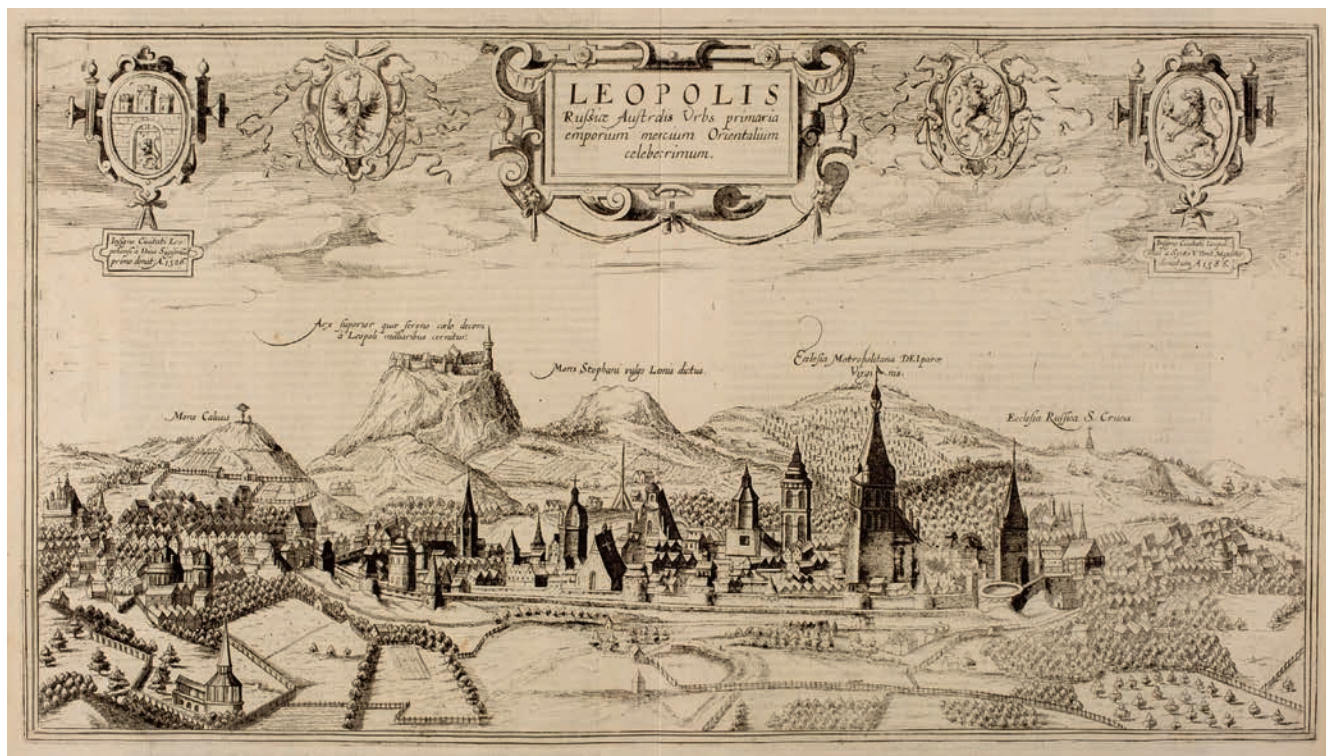 LEOPOLIS
Rußiæ Australis Vrbs primaria
emporium mercium Orientalium
celeberrimum.
Insigne Ciuitati Leo-
primo donat. A 1526.
Insigne Ciuitati Leopoli
a Sixto V Pont. Maximo
donatum A 1586.
Arx superior quæ sereno cœlo decem
à Leopoli milliaribus cernitur.
Mons Stephani vulgo Leonis dictus.
Ecclesia Metropolitana DEIparæ
Virginis.
Mons Caluus
Ecclesia Russica S. Crucis.